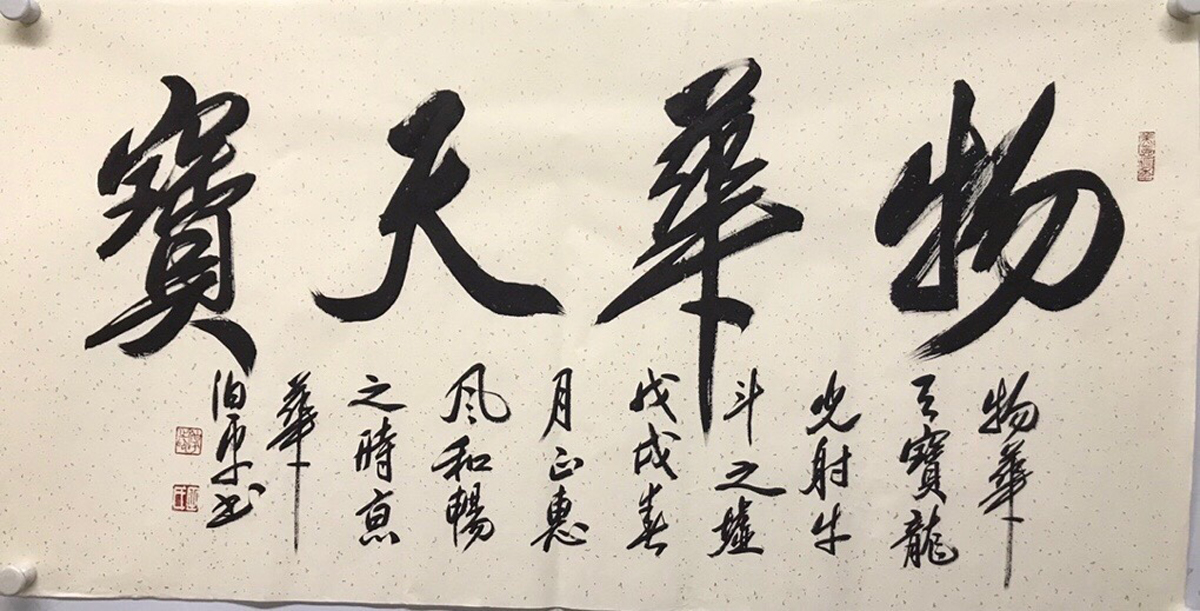 物華天寶
物華
天寶龍
光射牛
斗之墟
戊戌春
月正惠
风和暢
之時京
華
平书